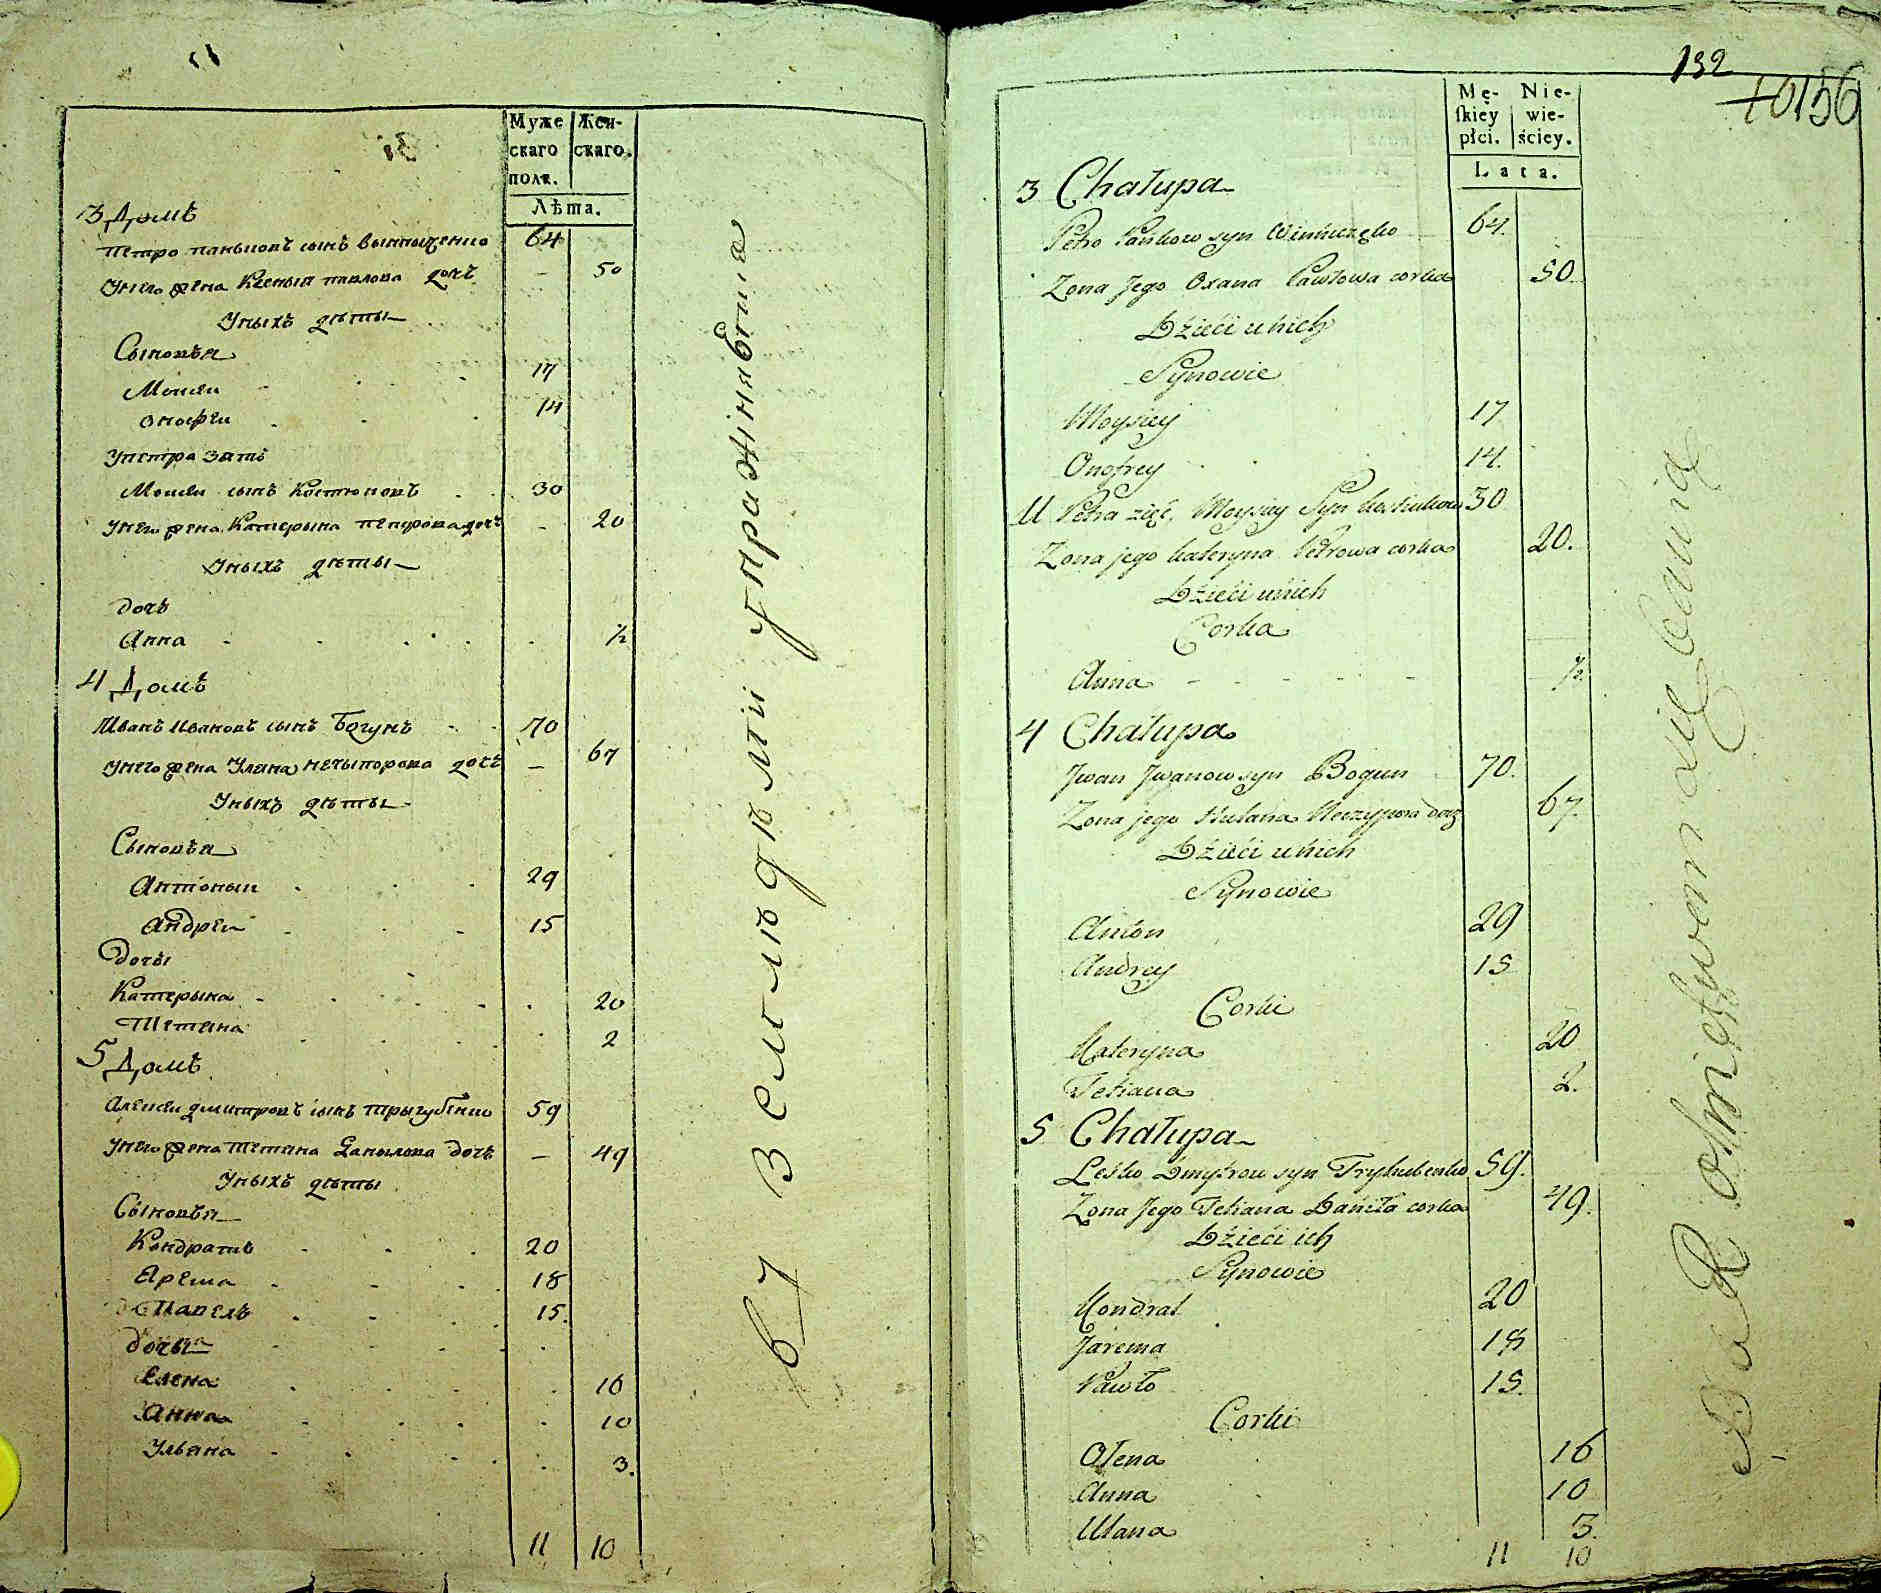 Муже
скаго
полꙋ.
Жен-
скаго.
Лѣта.
3 Домъ
Петро паньковъ сынъ 64
Унего жена Ксенья павлова дочъ - 50
Уныхъ дѣты
Сыновья
Моисей 17
Онофрей 14
Упетра зять
Моисей сынъ Костюковъ 30
Унего жена Катерына петрова дочъ - 20
Уныхъ дѣты
дочъ
Анна ½
4 Домъ
Иванъ Ивановъ сынъ Богунъ 70
Унего жена Уляна нечыпорова дочъ - 67
Уныхъ дѣты
Сыновья
Антоный 29
Андрей 15
Дочы
Катерына 20
Тетяна 2
5 Домъ
Алексей дмитровъ сынъ трыгубенко 59
Унего жена Тетяна Данылова дочъ - 49
Уныхъ дѣты
Сыновья
Кондратъ 20
Ярема 18
Павелъ 15.
дочы
Елена 16
Анна 10
Ульяна 3.
11 10
132
10156
Mę-
skiey
płci.
Nie-
wie-
ściey.
Lata.
3 Chałupa
Petro Pańkow syn Winniczenko 64.
Zona Jego Oxana Pawłowa corka 50.
Dzieci u nich
Synowie
Moysiey 17
Onofrey 14.
U Petra zięć, Moysiey Syn Kostiukow 30
Zona jego Kateryna Petrowa corka 20.
Dzieci u nich
Corka
Anna - - - - - ½.
4 Chałupa
Jwan Jwanow syn Bogun 70.
Zona jego Hulana Neczypora docz 67.
Dzieci u nich
Synowie
Anton 29
Andrey 15
Corki
Kateryna 20
Tetiana 2.
5 Chałupa
Lesko Dmytrow syn Tryhubenko 59.
Zona Jego Tetiana Daniła corka 49.
Dzieci ich
Synowie
Kondrat 20
Jarema 18
Pawło 15.
Corki
Ołena 16
Anna 10
Ulana 3.
11 10